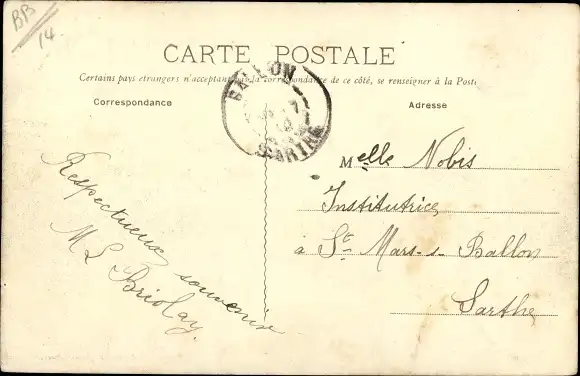 BB
14.
CARTE POSTALE
Certains pays etrangers n'acceptant pas la correspondance de ce côté, se renseigner à la Poste
Correspondance
Adresse
BALLON
SARTHE
Melle Nobis
Institutrice
à Ste Mars-s-Ballon
Sarthe
Respectueux souvenir
M L Briolay.